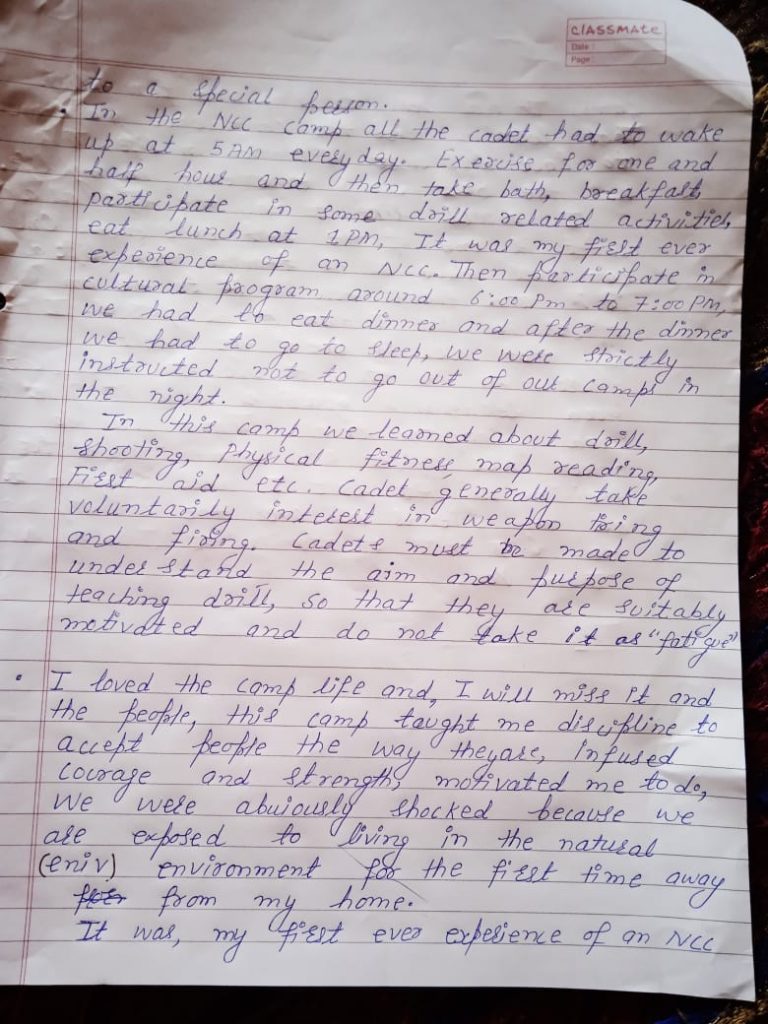 CLASSMATE
Date :
Page :
to a special person.
• In the NCC camp all the cadet had to wake
up at 5 AM everyday. Exercise for one and
half hour and then take bath, breakfast,
participate in some drill related activities,
eat lunch at 1 PM, It was my first ever
experience of an NCC. Then participate in
cultural program around 6:00 Pm to 7:00 PM,
we had to eat dinner and after the dinner
we had to go to sleep, we were strictly
instructed not to go out of our camps in
the night.
In this camp we learned about drill,
shooting, Physical fitness, map reading,
First aid etc. Cadet generally take
voluntarily interest in weapon
and firing. Cadets must be made to
understand the aim and purpose of
teaching drill, so that they are suitably
motivated and do not take it as "fatigue"
• I loved the camp life and, I will miss it and
the people, this camp taught me discipline to
accept people the way they are, Infused
courage and strength, motivated me to do,
We were abuiously shocked because we
are exposed to living in the natural
(eniv) environment for the first time away
from my home.
It was, my first ever experience of an NCC